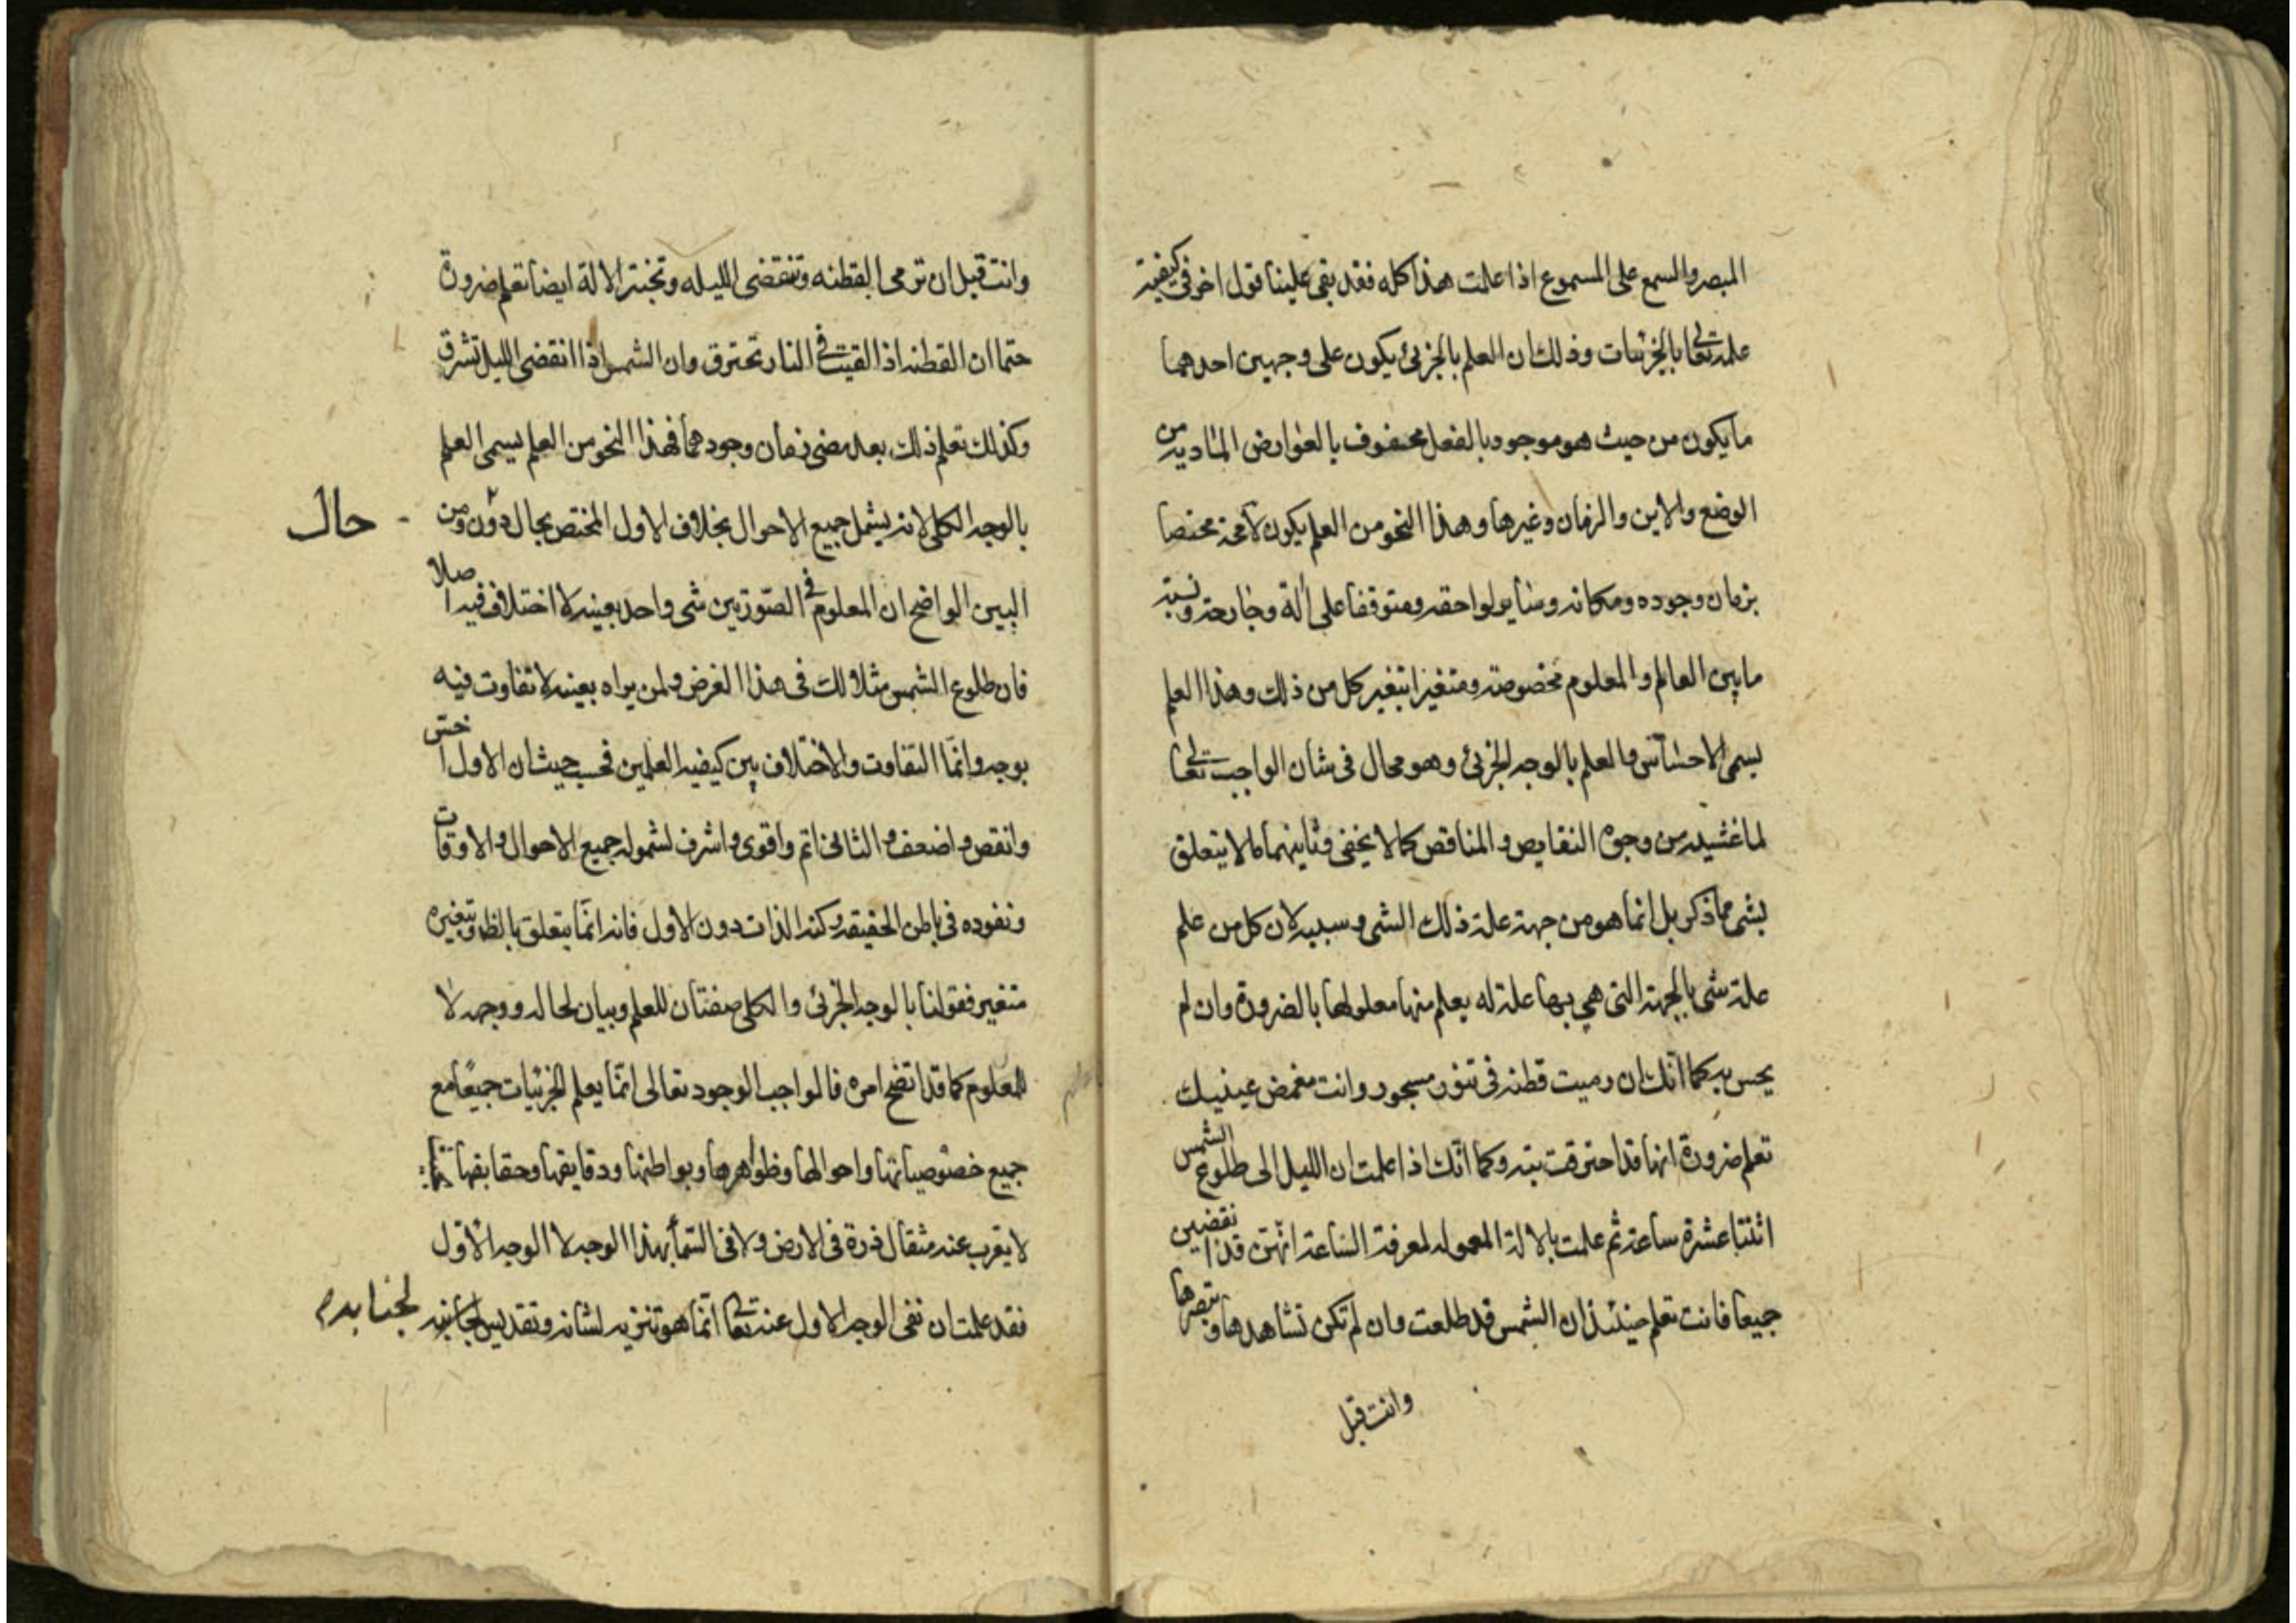 المبصر والسمع على المسموع اذا علمت هذا كله فقد بقى علينا قول اخر فى كيفية
علمه تعالى بالجزئيات وذلك ان العلم بالجزئى يكون على وجهين احدهما
ما يكون من حيث هو موجود بالفعل محفوف بالعوارض المادية من
الوضع والاين والزمان وغيرها وهذا النحو من العلم يكون لا محة مختصا
بزمان وجوده ومكانه وساير لواحقه ومتوقفا على آلة وجارحة ونسبة
ما بين العالم والمعلوم مخصوصة ومتغيرا بتغير كل من ذلك وهذا العلم
يسمى الاحساس والعلم بالوجه الجزئى وهو محال فى شان الواجب تعالى
لما غشيه من وجوه النقايص والمناقص كما لا يخفى وثانيهما ما لا يتعلق
بشى مما ذكر بل انما هو من جهة علة ذلك الشى وسببه لان كل من علم
علة شى بالجهة التى هى بها علة له يعلم منها معلولها بالضرورة وان لم
يحس به كما انك ان رميت قطنه فى تنور مسجور وانت مغمض عينيك
تعلم ضرورة انها قد احترقت بته وكما انك اذا علمت ان الليل الى طلوع الشمس
اثنتا عشرة ساعة ثم علمت بالالة المعموله لمعرفة الساعة انهن قد انقضين
جميعا فانت تعلم حينئذ ان الشمس قد طلعت وان لم تكن تشاهدها وتبصرها
وانت قبل
وانت قبل ان ترمى القطنه وتنقضى الليله وتختبر الالة ايضا تعلم ضرورة
حتما ان القطنه اذا القيت فى النار تحترق وان الشمس اذا انقضى الليل تشرق
وكذلك تعلم ذلك بعد مضى زمان وجودهما فهذا النحو من العلم يسمى العلم
بالوجه الكلى لانه يشمل جميع الاحوال بخلاف الاول المختص بحال دون ومن
حال
البين الواضح ان المعلوم فى الصورتين شى واحد بعينه لا اختلاف فيه اصلا
فان طلوع الشمس مثلا لك فى هذا الفرض ولمن يراه بعينه لا تفاوت فيه
بوجه وانما التفاوت والاختلاف بين كيفية العلمين فحسب حيث ان الاول اخس
وانقص واضعف والثانى اتم واقوى واشرف لشموله جميع الاحوال والاوقات
ونفوده فى باطن الحقيقة وكنه الذات دون الاول فانه انما يتعلق بالظ وتغيره
متغير فقولنا بالوجه الجزئى والكلى صفتان للعلم وبيان لحاله ووجهه لا
للمعلوم كما قد اتضح امره فالواجب الوجود تعالى انما يعلم الجزئيات جميعا مع
جميع خصوصياتها واحوالها وظواهرها وبواطنها ودقايقها وحقايقها
لا يعزب عنه مثقال ذرة فى الارض ولا فى السماء بهذا الوجه لا الوجه الاول
فقد علمت ان نفى الوجه الاول عنه تعالى انما هو تنزيه لشانه وتقديس لجانبه
لجنابه م